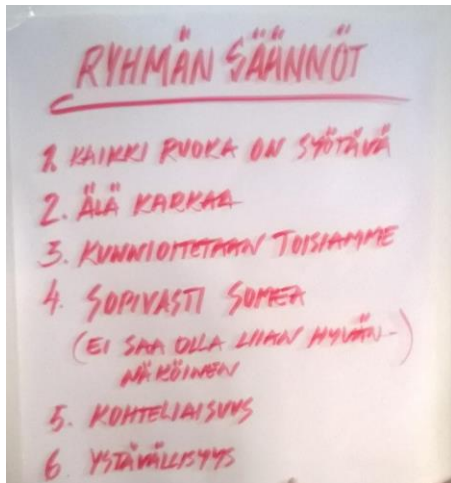 RYHMÄN SÄÄNNÖT
1. KAIKKI RUOKA ON SYÖTÄVÄ
2. ÄLÄ KARKAA
3. KUNNIOITETAAN TOISIAMME
4. SOPIVASTI SOMEA
(EI SAA OLLA LIIAN HYVÄN-
NÄKÖINEN)
5. KOHTELIAISUUS
6. YSTÄVÄLLISYYS